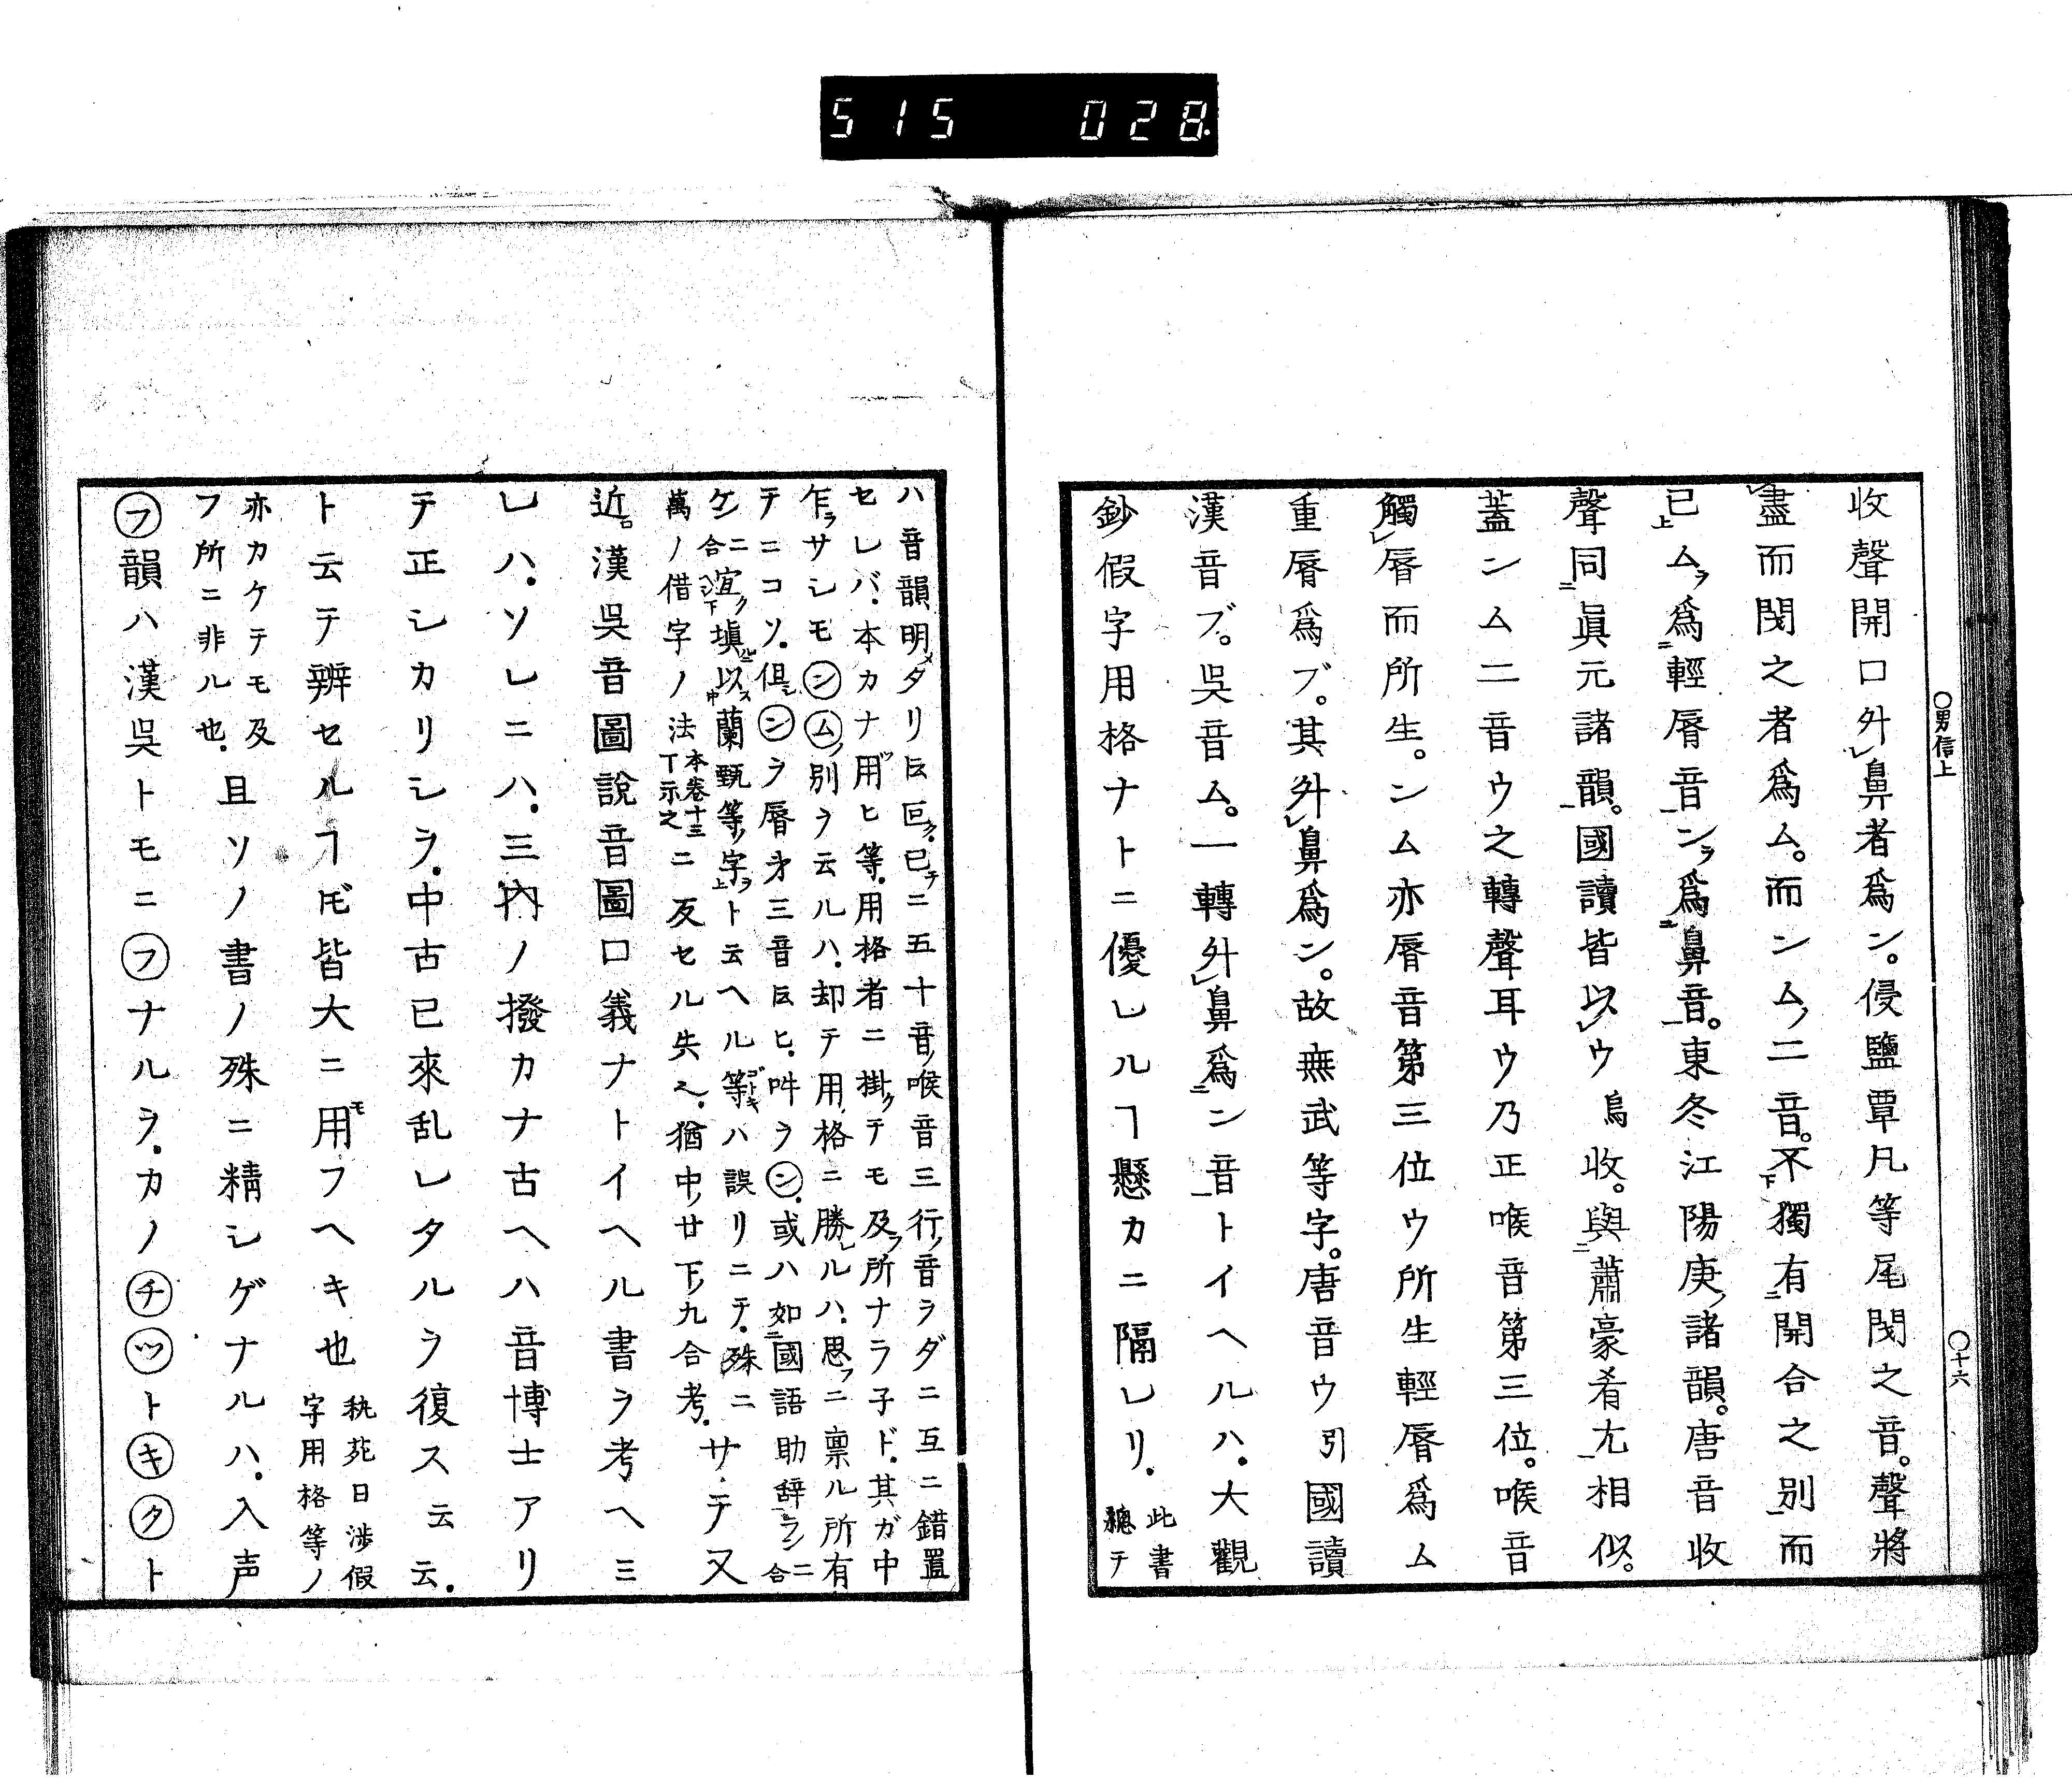 515 028.
○男信上
○十六
收聲開口外レ鼻者爲ン。侵鹽覃凡等尾閉之音。聲將
レ盡而閉之者爲ム。而ンムノ二音。不下獨有二開合之別一而
已上ムヲ爲二輕脣音一ンヲ爲二鼻音一。東冬江陽庚ノ諸韻。唐音收
聲同二眞元諸韻一。國讀皆以レウ烏收。與二蕭豪肴尤一相似。
蓋ンム二音ウ之轉聲耳ウ乃正喉音第三位。喉音
觸レ脣而所生。ンム亦脣音第三位ウ所生輕脣爲ム
重脣爲ブ。其外レ鼻爲ン。故無武等字。唐音ウ引國讀
漢音ブ。吳音ム。一轉外レ鼻爲二ン音一トイヘルハ.大觀
鈔假字用格ナトニ優レルヿ懸カニ隔レリ.此書
總テ
ハ音韻明メタリ𪜈叵ク.已チニ五十音ノ喉音三行ノ音ラダニ互ニ錯置
セレバ.本カナ用ヒ等.用格者ニ掛クテモ及ラ所ナラ子ド.其ガ中
乍ラサレモンムノ別ヲ云ルハ.却テ用格ニ勝レルハ.思フニ禀ル所有
テニコソ.但シンヲ脣オ三音𪜈ヒ.吽ヲン.或ハ如二國語助辞ランニ合
ケンニ合シ宜下ク塡二以中ス蘭甄等ノ字上ヲト云ヘル等ゴトキハ誤リニテ.殊ニ
萬ノ借字ノ法本卷十三丁示之ニ反セル失ヘ.猶中ノ廿下ノ九合考.サテ又
近。漢吳音圖說音圖口義ナトイヘル書ヲ考ヘミ
レハ.ソレニハ.三內ノ撥カナ古ヘハ音博士アリ
テ正シカリシヲ.中古已來乱レタルヲ復ス云云.
ト云テ辨セルヿ𪜈皆大ニ用モフヘキ也 秇苑日渉假
字用格等ノ
亦カケテモ及
フ所ニ非ル也.且ソノ書ノ殊ニ精シゲナルハ.入声
フ韻ハ漢吳トモニフナルヲ.カノチツトキクト